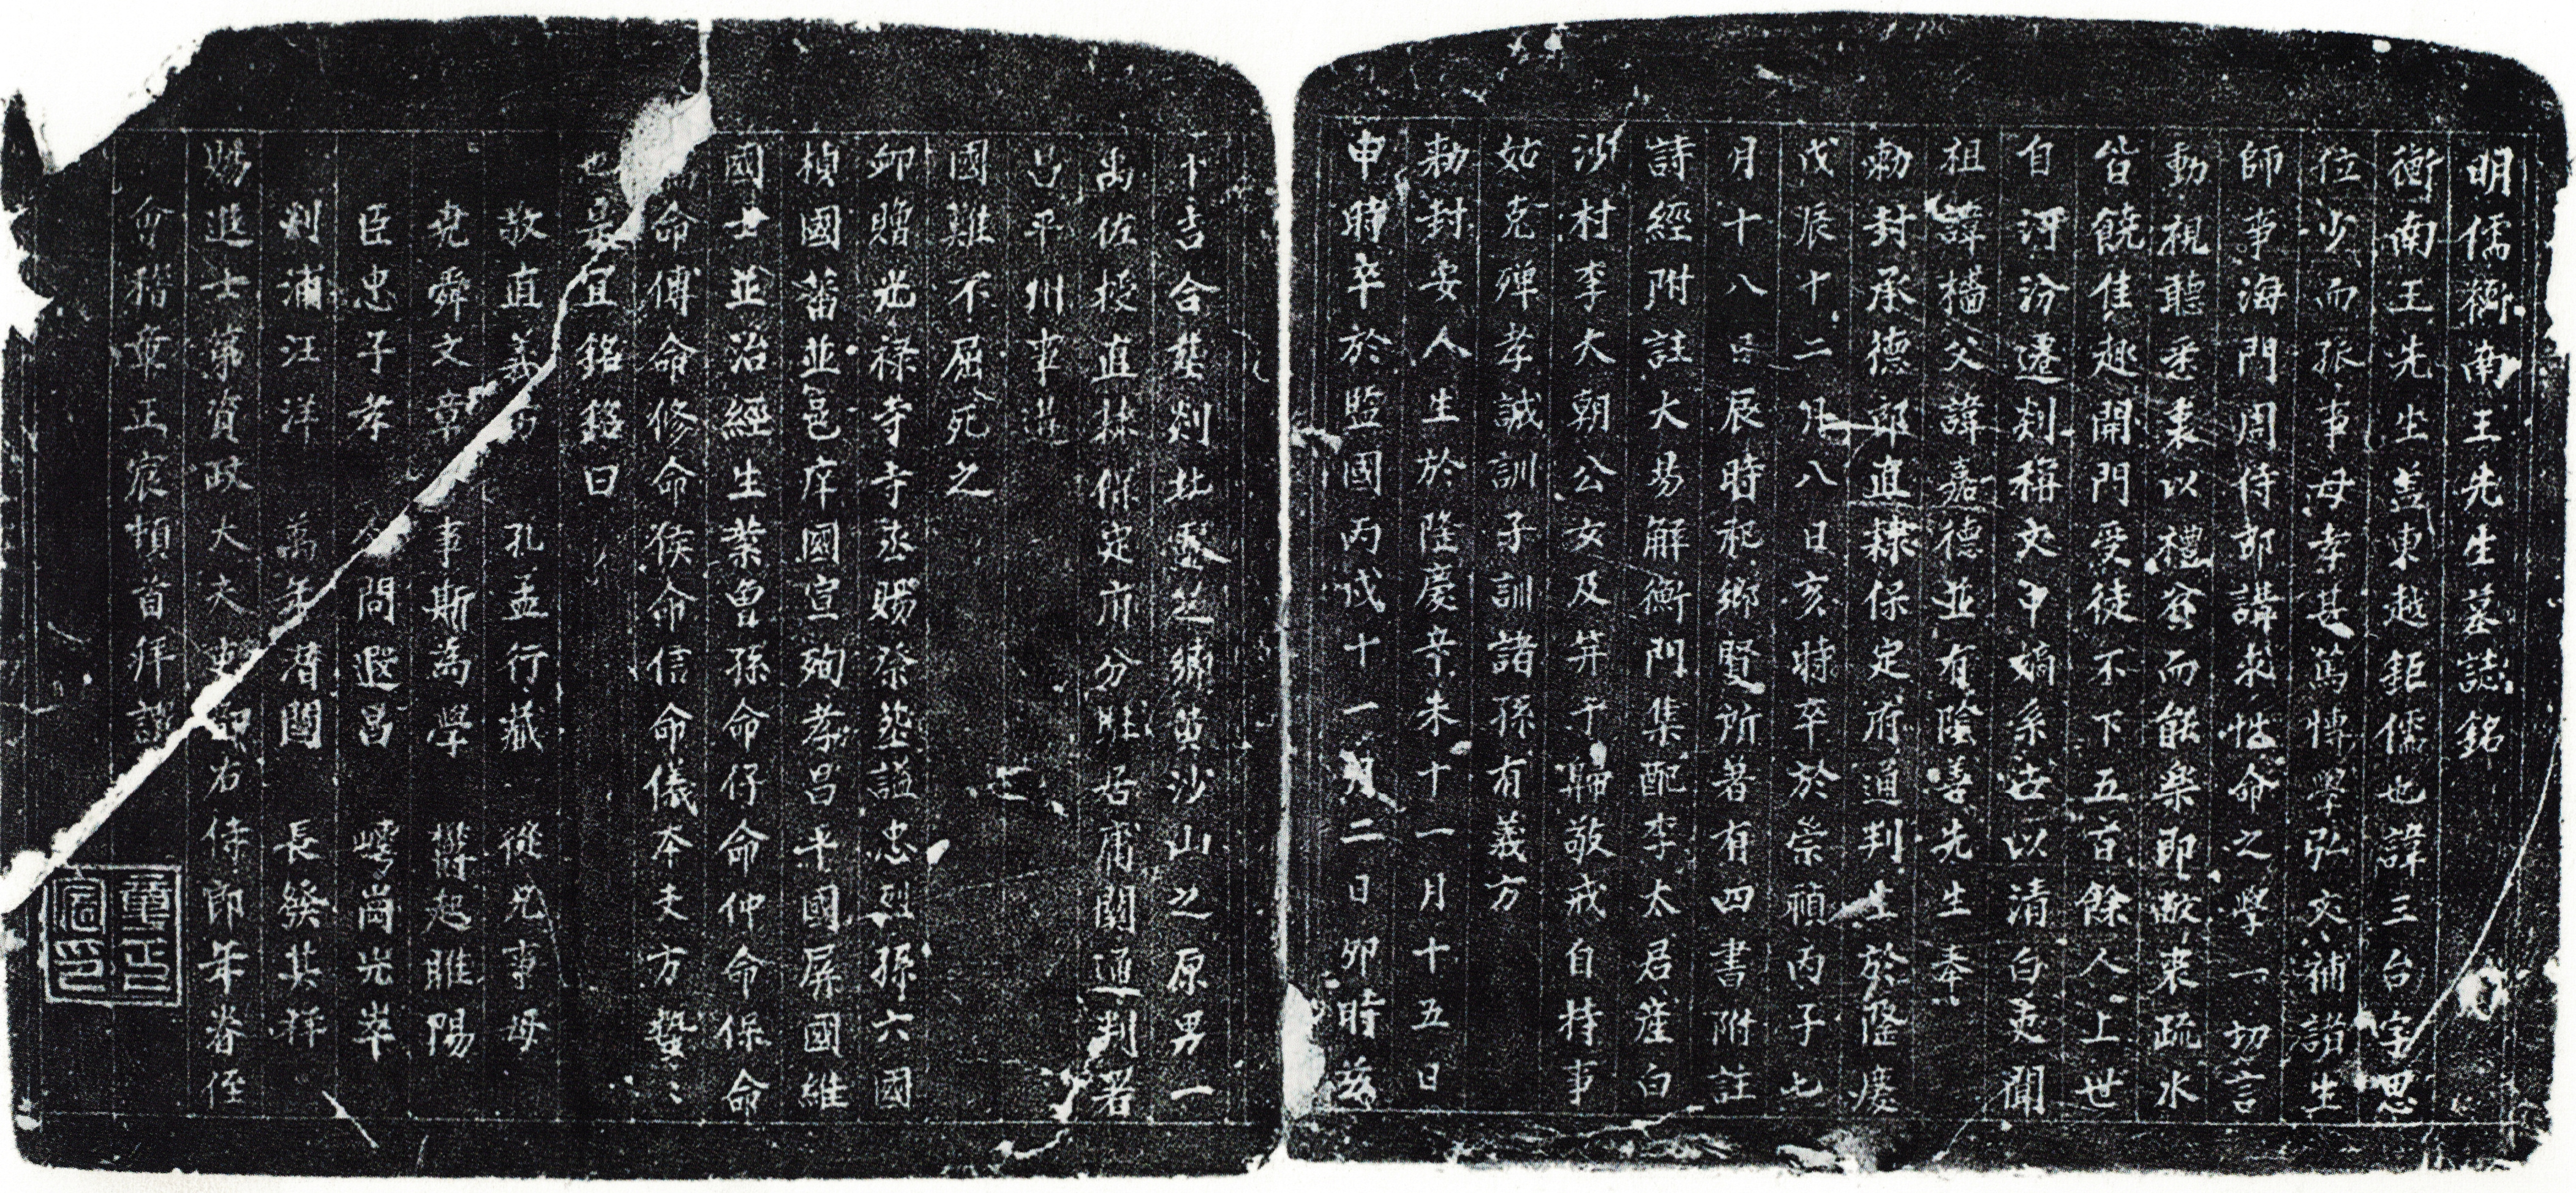 明儒衡南王先生墓誌銘
衡南王先生蓋東越鉅儒也諱三台字思
位少而孤事母孝甚篤博學弘文補諸生
師事海門周侍郎講求性命之學一切言
動視聽悉衷以禮貧而能樂即敝裘疏水
皆饒佳趣開門受徒不下五百餘人上世
自河汾遷剡稱文中嫡系世以清白吏聞
祖諱檣父諱嘉德並有陰善先生奉
勅封承德郎直隸保定府通判生於隆慶
戊辰十二月八日亥時卒於崇禎丙子七
月十八日辰時祀鄉賢所著有四書附註
詩經附註大易解衡門集配李太君崖白
沙村李大朝公女及笄于歸敬戒自持事
姑克殫孝誠訓子訓諸孫有義方
勅封安人生於隆慶辛未十一月十五日
申時卒於監國丙戌十一月二日卯時茲
卜吉合塋剡北墅芝嶺黄沙山之原男一
禹佐授直隸保定府分駐居庸關通判署
昌平州事遭
國難不屈死之
卹贈光禄寺寺丞賜祭葬謚忠烈孫六國
楨國蕃並邑庠國宣殉孝昌平國屏國維
國士並治經生業曾孫命仔命仲命保命
命傅命修命候命信命儀夲支方蟄〻
也是宜銘銘曰
敬直義方 孔孟行藏 從兄事母
堯舜文章 事斯為學 欝起睢陽
臣忠子孝 問遐昌 崿崗光崒
剡浦汪洋 萬年潛閟 長發其祥
賜進士第資政大夫吏部右侍郎年眷侄
會稽章正宸頓首拜譔
章正宸印